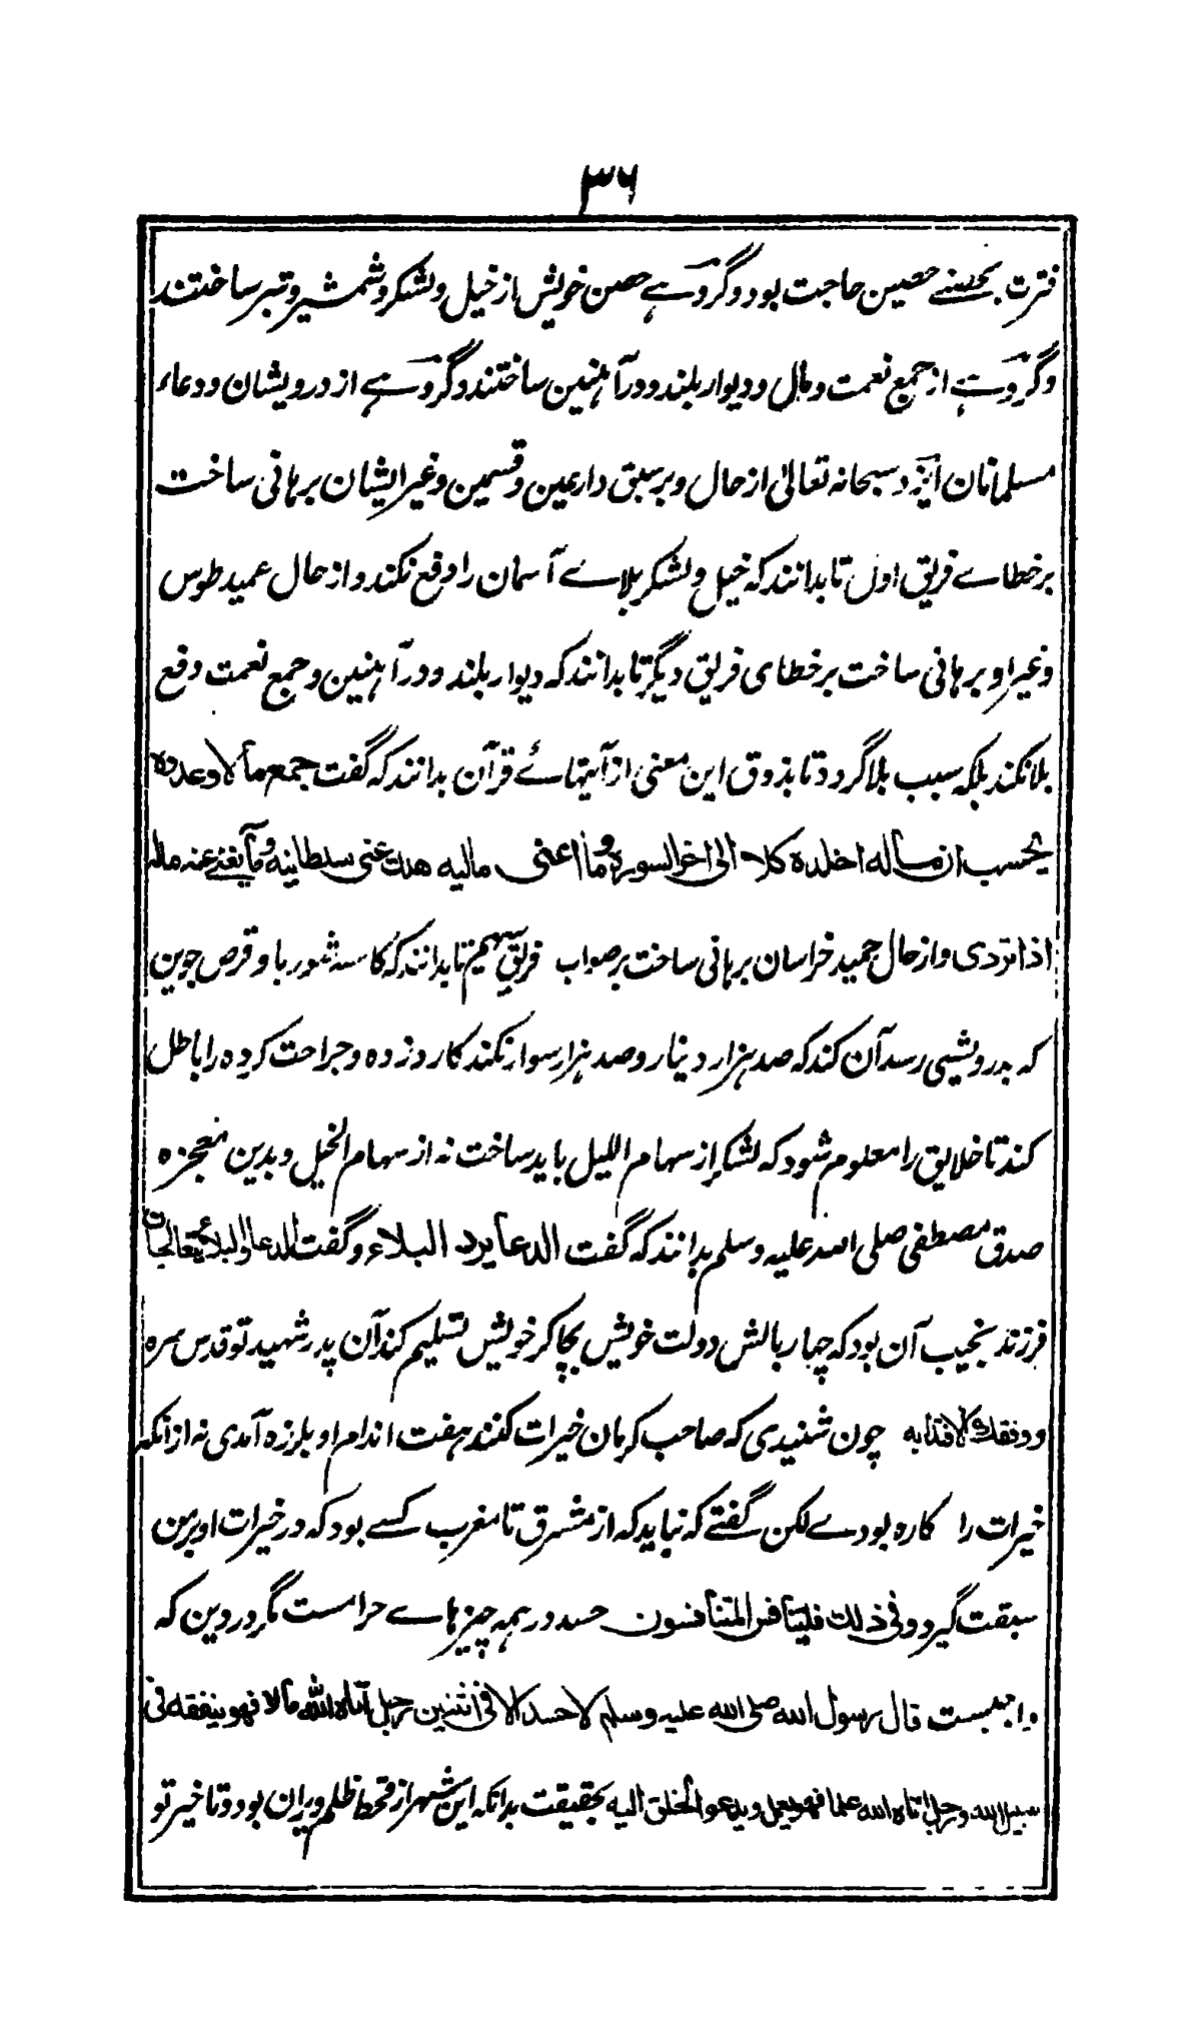 ۳۶
فترت بحصنے حصین حاجت بود و گروہے حصن خویش از خیل و لشکر و شمشیر و تبر ساختند
و گروہے از جمع نعمت و مال و دیوار بلند و در آہنین ساختند و گروہے از درویشان و دعاء
مسلمانان ایزد سبحانہ تعالیٰ از حال و برسبق دارعین و قسمین و غیر ایشان برہانی ساخت
بر خطاے فریق اول تا بدانند کہ خیل و لشکر بلاے آسمان را دفع نکند و از حال عمید طوس
و غیر او برہانی ساخت بر خطای فریق دیگر تا بدانند کہ دیوار بلند و در آہنین و جمع نعمت دفع
بلا نکند بلکہ سبب بلا گردد تا بذوق این معنی از آیتہائے قرآن بدانند کہ گفت جمع مالا وعدده
یحسب ان ماله اخلده کلا الی اخر السورة وما اغنی مالیه هلك عنی سلطانیه وما یغنی عنه ماله
اذا تردی و از حال حمید خراسان برہانی ساخت بر صواب فریق سیم تا بدانند کہ کاسہ شوربا و قرص جوین
کہ بدرویشی رسد آن کند کہ صد ہزار دینار و صد ہزار سوار نکند کار دزدہ و جراحت کردہ را باطل
کند تا خلایق را معلوم شود کہ لشکر از سہام اللیل باید ساخت نہ از سہام الخیل و بدین معجزہ
صدق مصطفی صلی اللہ علیہ وسلم بدانند کہ گفت الدعا یرد البلاء و گفت الدعا والبلاء یتعالجان
فرزند نجیب آن بود کہ چہار بالش دولت خویش بچاکر خویش تسلیم کند آن پدر شہید تو قدس سرہ
ووفقك الاقتدا به چون شنیدی کہ صاحب کرمان خیرات کنند ہفت اندام او بلرزہ آمدی نہ از انکہ
خیرات را کارہ بودے لکن گفتے کہ نباید کہ از مشرق تا مغرب کسے بود کہ در خیرات او برمن
سبقت گیرد وفی ذلك فلیتنافس المتنافسون حسد در ہمہ چیزہاے حرامست مگر در دین کہ
واجبست قال رسول الله صلی الله علیه وسلم لا حسد الا فی اثنین رجل آتاه الله مالا فهو ینفقه فی
سبیل الله و رجل اتاه الله علما فهو یعمل و یدعو الخلق الیه بحقیقت بدانکہ این شہر از قحط و ظلم ویران بود و تا خیر تو